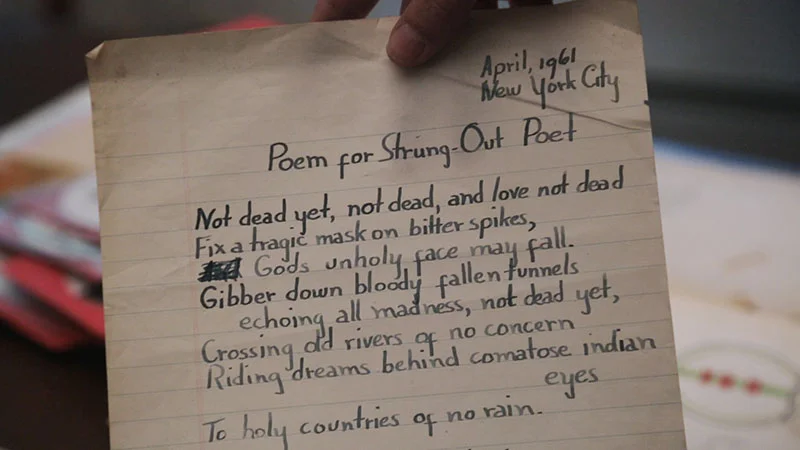 April, 1961
New York City
Poem for Strung-Out Poet
Not dead yet, not dead, and love not dead
Fix a tragic mask on bitter spikes,
Gods unholy face may fall.
Gibber down bloody fallen tunnels
echoing all madness, not dead yet,
Crossing old rivers of no concern
Riding dreams behind comatose indian
eyes
To holy countries of no rain.